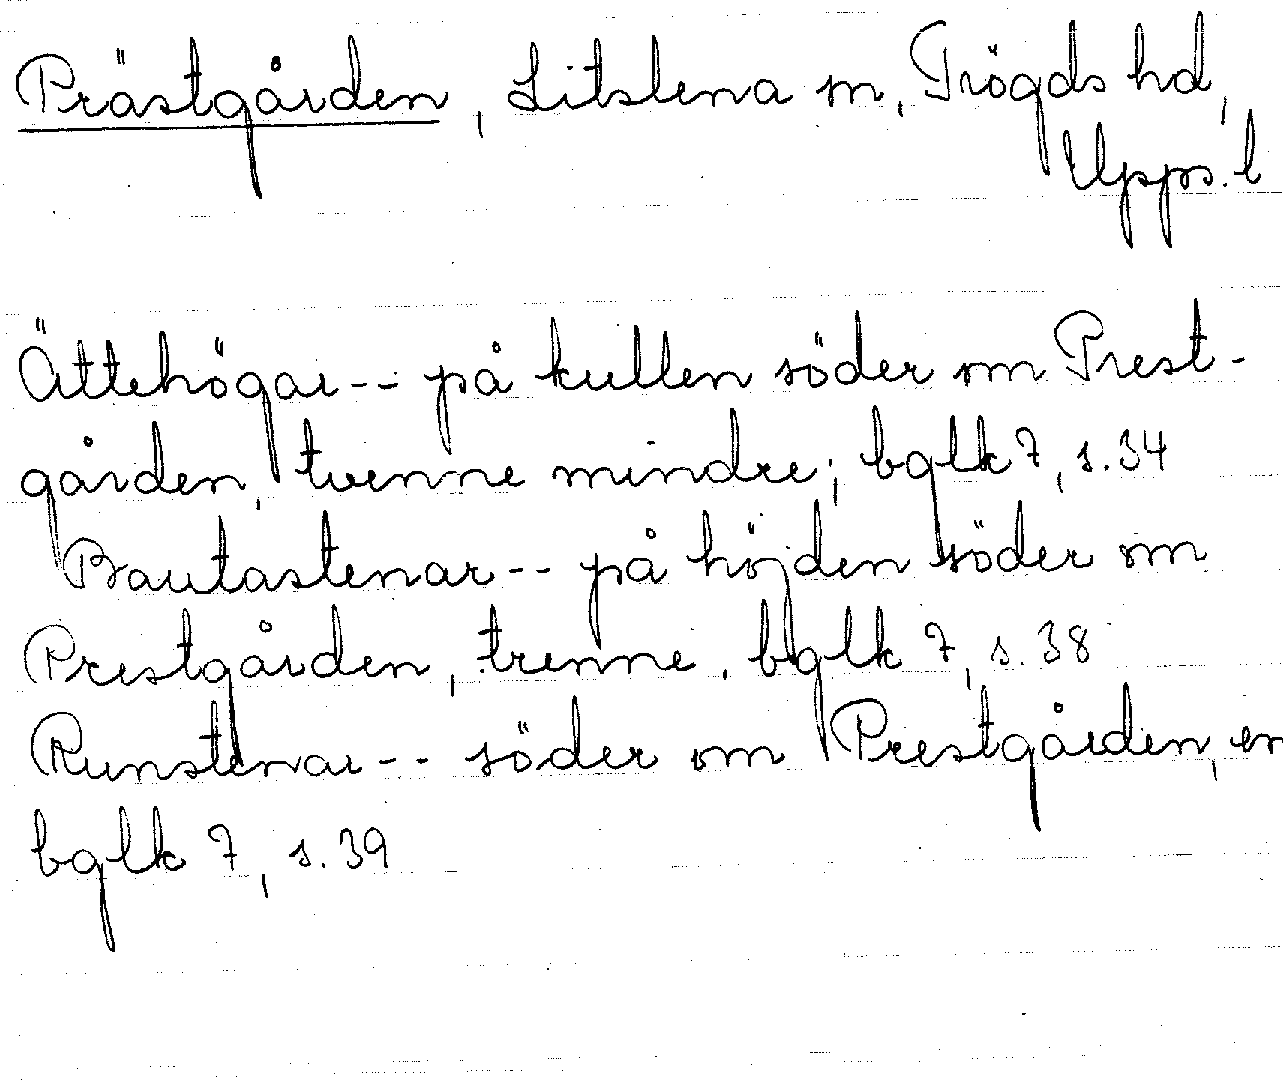 Prästgården, Litslena sn, Trögds hd,
Upps. l
Ättehögar-- på kullen söder om Prest-
gården, tvenne mindre; bglk 7, s. 34
Bautastenar-- på höjden söder om
Prestgården, trenne, bglk 7, s. 38
Runstenar-- söder om Prestgården, en
bglk 7, s. 39